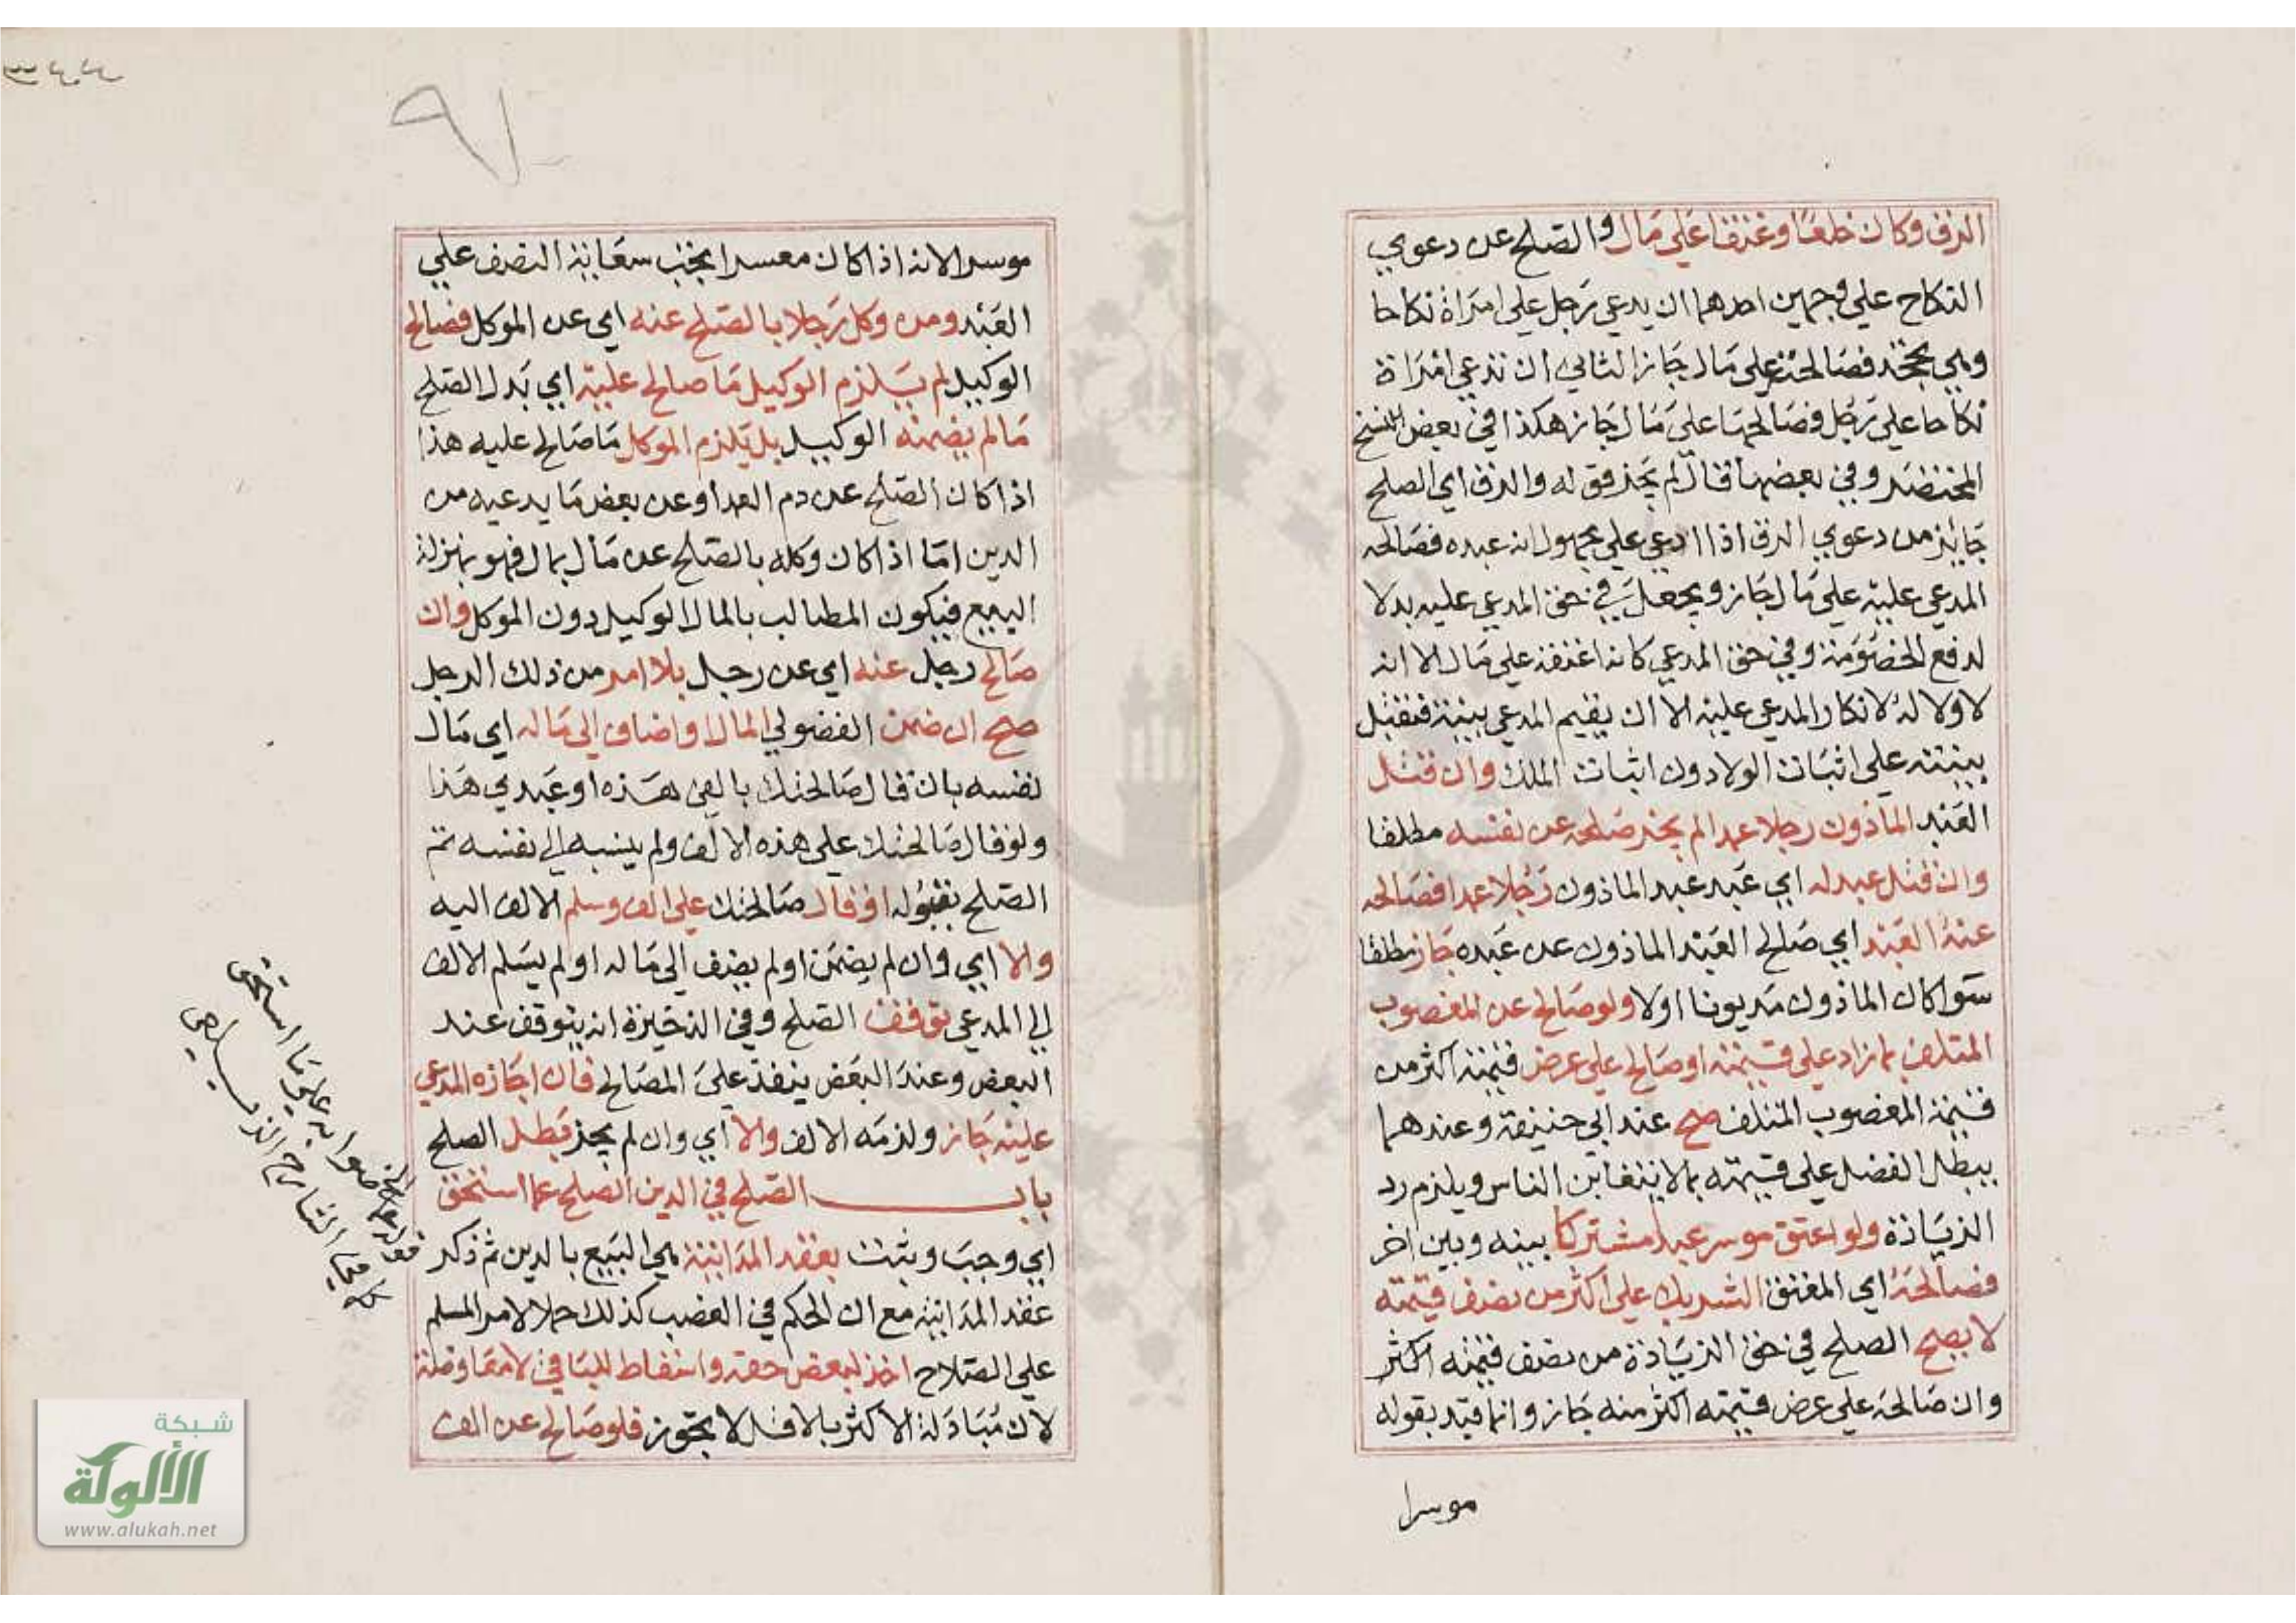 الرق وكان خلعا وعتقا على مال والصلح عن دعوي
النكاح علي وجهين احدهما ان يدعي رجل علي امراة نكاحا
وهي تجحد فصالحته علي مال جاز الثاني ان تدعي امراة
نكاحا علي رجل فصالحها علي مال جاز هكذا في بعض النسخ
المختصر وفي بعضها قال لم يجز قوله والرق اي الصلح
جايز من دعوي الرق اذا ادعي علي مجهول انه عبده فصالحه
المدعي عليه علي مال جاز ويجعل في حق المدعي عليه بدلا
لدفع الخصومة وفي حق المدعي كانه اعتقه علي مال الا انه
لا ولا له لانكار المدعي عليه الا ان يقيم المدعي بينة فتقبل
بينته علي اثبات الولا دون اثبات الملك وان قتل
العبد الماذون رجلا عمدا لم يجز صلحه عن نفسه مطلقا
وان قتل عبد له اي عبد عبد الماذون رجلا عمدا فصالحه
عنه العبد اي صالح العبد الماذون عن عبده جاز مطلقا
سوا كان الماذون مديونا اولا ولو صالح عن المغصوب
المتلف بما زاد علي قيمته او صالح علي عرض قيمته اكثر من
قيمة المغصوب المتلف صح عند ابي حنيفة وعندهما
يبطل الفضل علي قيمته بما لا يتغابن الناس ويلزم رد
الزيادة ولو اعتق موسر عبدا مشتركا بينه وبين اخر
فصالحه اي المعتق الشريك علي اكثر من نصف قيمته
لا يصح الصلح في حق الزيادة من نصف قيمته اكثر
وان صالحه علي عرض قيمته اكثر منه جاز وانما قيد بقوله
موسرا
٩١
موسرا لانه اذا كان معسرا يجب سعاية النصف علي
العبد ومن وكل رجلا بالصلح عنه اي عن الموكل فصالح
الوكيل لم يلزم الوكيل ما صالح عليه اي بدل الصلح
مالم يضمنه الوكيل بل يلزم الموكل ما صالح عليه هذا
اذا كان الصلح عن دم العمد او عن بعض ما يدعيه من
الدين اما اذا كان وكله بالصلح عن مال بمال فهو بمنزلة
البيع فيكون المطالب بالمال الوكيل دون الموكل وان
صالح رجل عنه اي عن رجل بلا امر من ذلك الرجل
صح ان ضمن الفضولي المال او اضاف الي ماله اي مال
نفسه بان قال صالحتك بالفي هذه او عبدي هذا
ولو قال صالحتك علي هذه الالف ولم ينسبه الي نفسه تم
الصلح بقبوله او قال صالحتك علي الف وسلم الالف اليه
والا اي وان لم يضمن اولم يضف الي ماله اولم يسلم الالف
الي المدعي توقف الصلح وفي الذخيرة انه يتوقف عند
البعض وعند البعض ينفذ علي المصالح فان اجازه المدعي
عليه جاز ولزمه الالف والا اي وان لم يجز بطل الصلح
باب الصلح في الدين الصلح عما استحق
اي وجب وثبت بعقد المداينة هي البيع بالدين ثم ذكر
عقد المداينة مع ان الحكم في الغصب كذلك حملا لامر المسلم
علي الصلاح اخذ لبعض حقه واسقاط للباقي لا معاوضة
لان مبادلة الاكثر بالاقل لا يجوز فلو صالح عن الف
صوابه علي ما استحق
شبكة
الألوكة
www.alukah.net